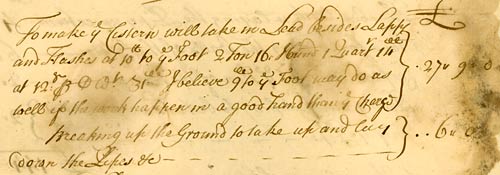 £
To make ye Cistern will take in Lead besides Lapps
and Flashes at 10lb to ye Foot 2 Ton 16 Hund 1 Quart 14
at 12s I believe 9lb to ye Foot may do as . 27 " 9 " 0
well if the work happen in a good hand than ye
breaking up the Ground to take up and Lay . . 6 " 0
down the Pipes &c